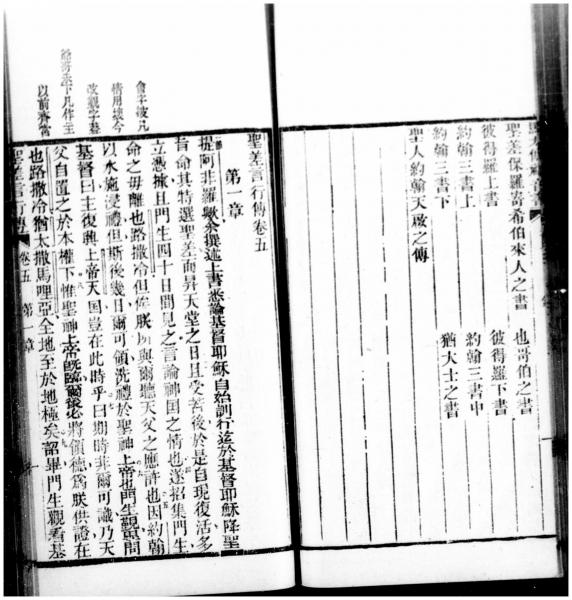 聖差保羅寄希伯來人之書
也哥伯之書
彼得羅上書
彼得羅下書
約翰三書上
約翰三書中
約翰三書下
猶大士之書
聖人約翰天啟之傳
聖差言行傳卷五
第一章
提阿非羅歟余撰述上書悉論基督耶穌自始訓行迄於基督耶穌降聖
旨命其特選聖差而昇天堂之日且受苦後於是自現復活多
立憑據且門生四十日間見之言論神国之情也遂招集門生
命之毋離也路撒冷但俟朕所與爾聽天父之應許也因約翰
以水施浸禮但斯後幾日爾可領洗禮於聖神上帝也門生觀草問
基督曰主復興上帝天国豈在此時乎曰期時非爾可識乃天
父自置之於本權下惟聖神上帝既臨爾後必將領德爲朕供證在
也路撒冷猶太撒馬哩亞全地至於地極矣詔畢門生觀看基
聖差言行傳 卷五 第一章